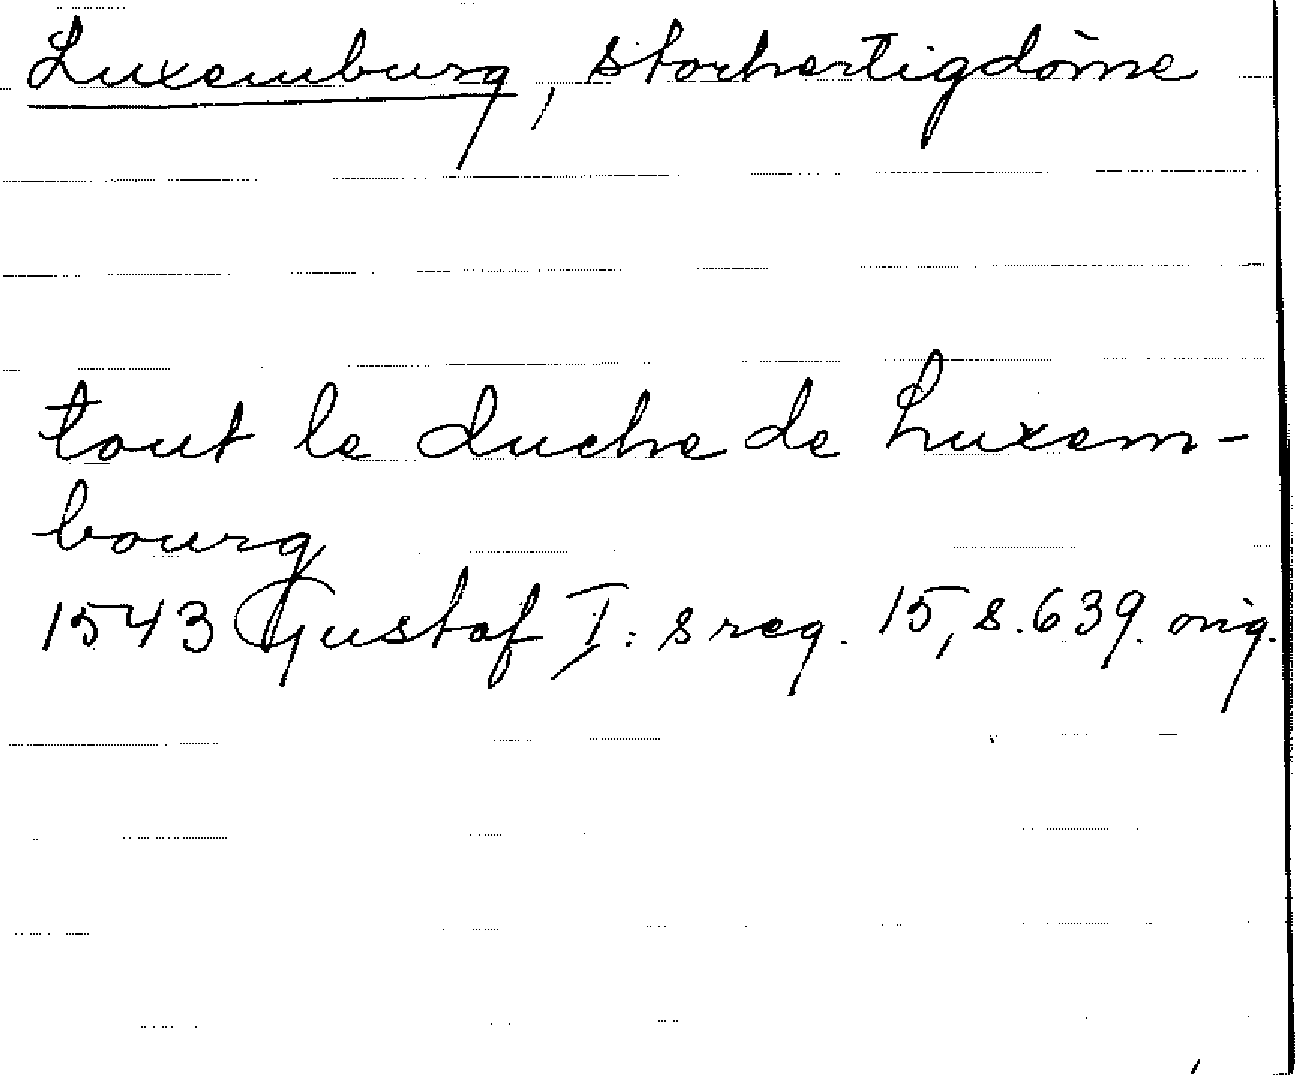 Luxemburg, storhertigdöme
tout le duche de Luxem-
bourg
1543 Gustaf I:s reg. 15, s. 639. orig.